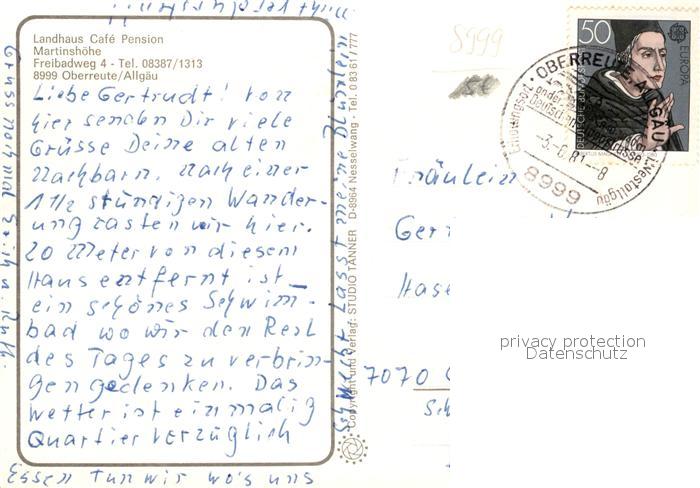 Landhaus Café Pension
Martinshöhe
Freibadweg 4 - Tel. 08387/1313
8999 Oberreute/Allgäu
Liebe Gertrudt! von
hier senden Dir viele
Grüsse Deine alten
Nachbarn. Nach einer
1 1/2 stündigen Wander-
ung rasten wir hier.
20 Meter von diesem
Haus entfernt ist
ein schönes Schwim-
bad wo wir den Rest
des Tages zu verbrin-
gen gedenken. Das
Wetter ist einmalig
Quartier vorzüglich
Essen tun wir wo's uns
schmeckt. Lasst meine Blümlein
nicht
Gruss nochmal u.
Copyright und Verlag: STUDIO TANNER D-8964 Nesselwang - Tel. 0 83 61 / 777
8999
50
EUROPA
DEUTSCHE BUNDESPOST
OBERREUTE, ALLGÄU
-3.-6.81.-8
8999
Westallgäu
Fräulein
Ger
Hase
7070
Sch
privacy protection
Datenschutz